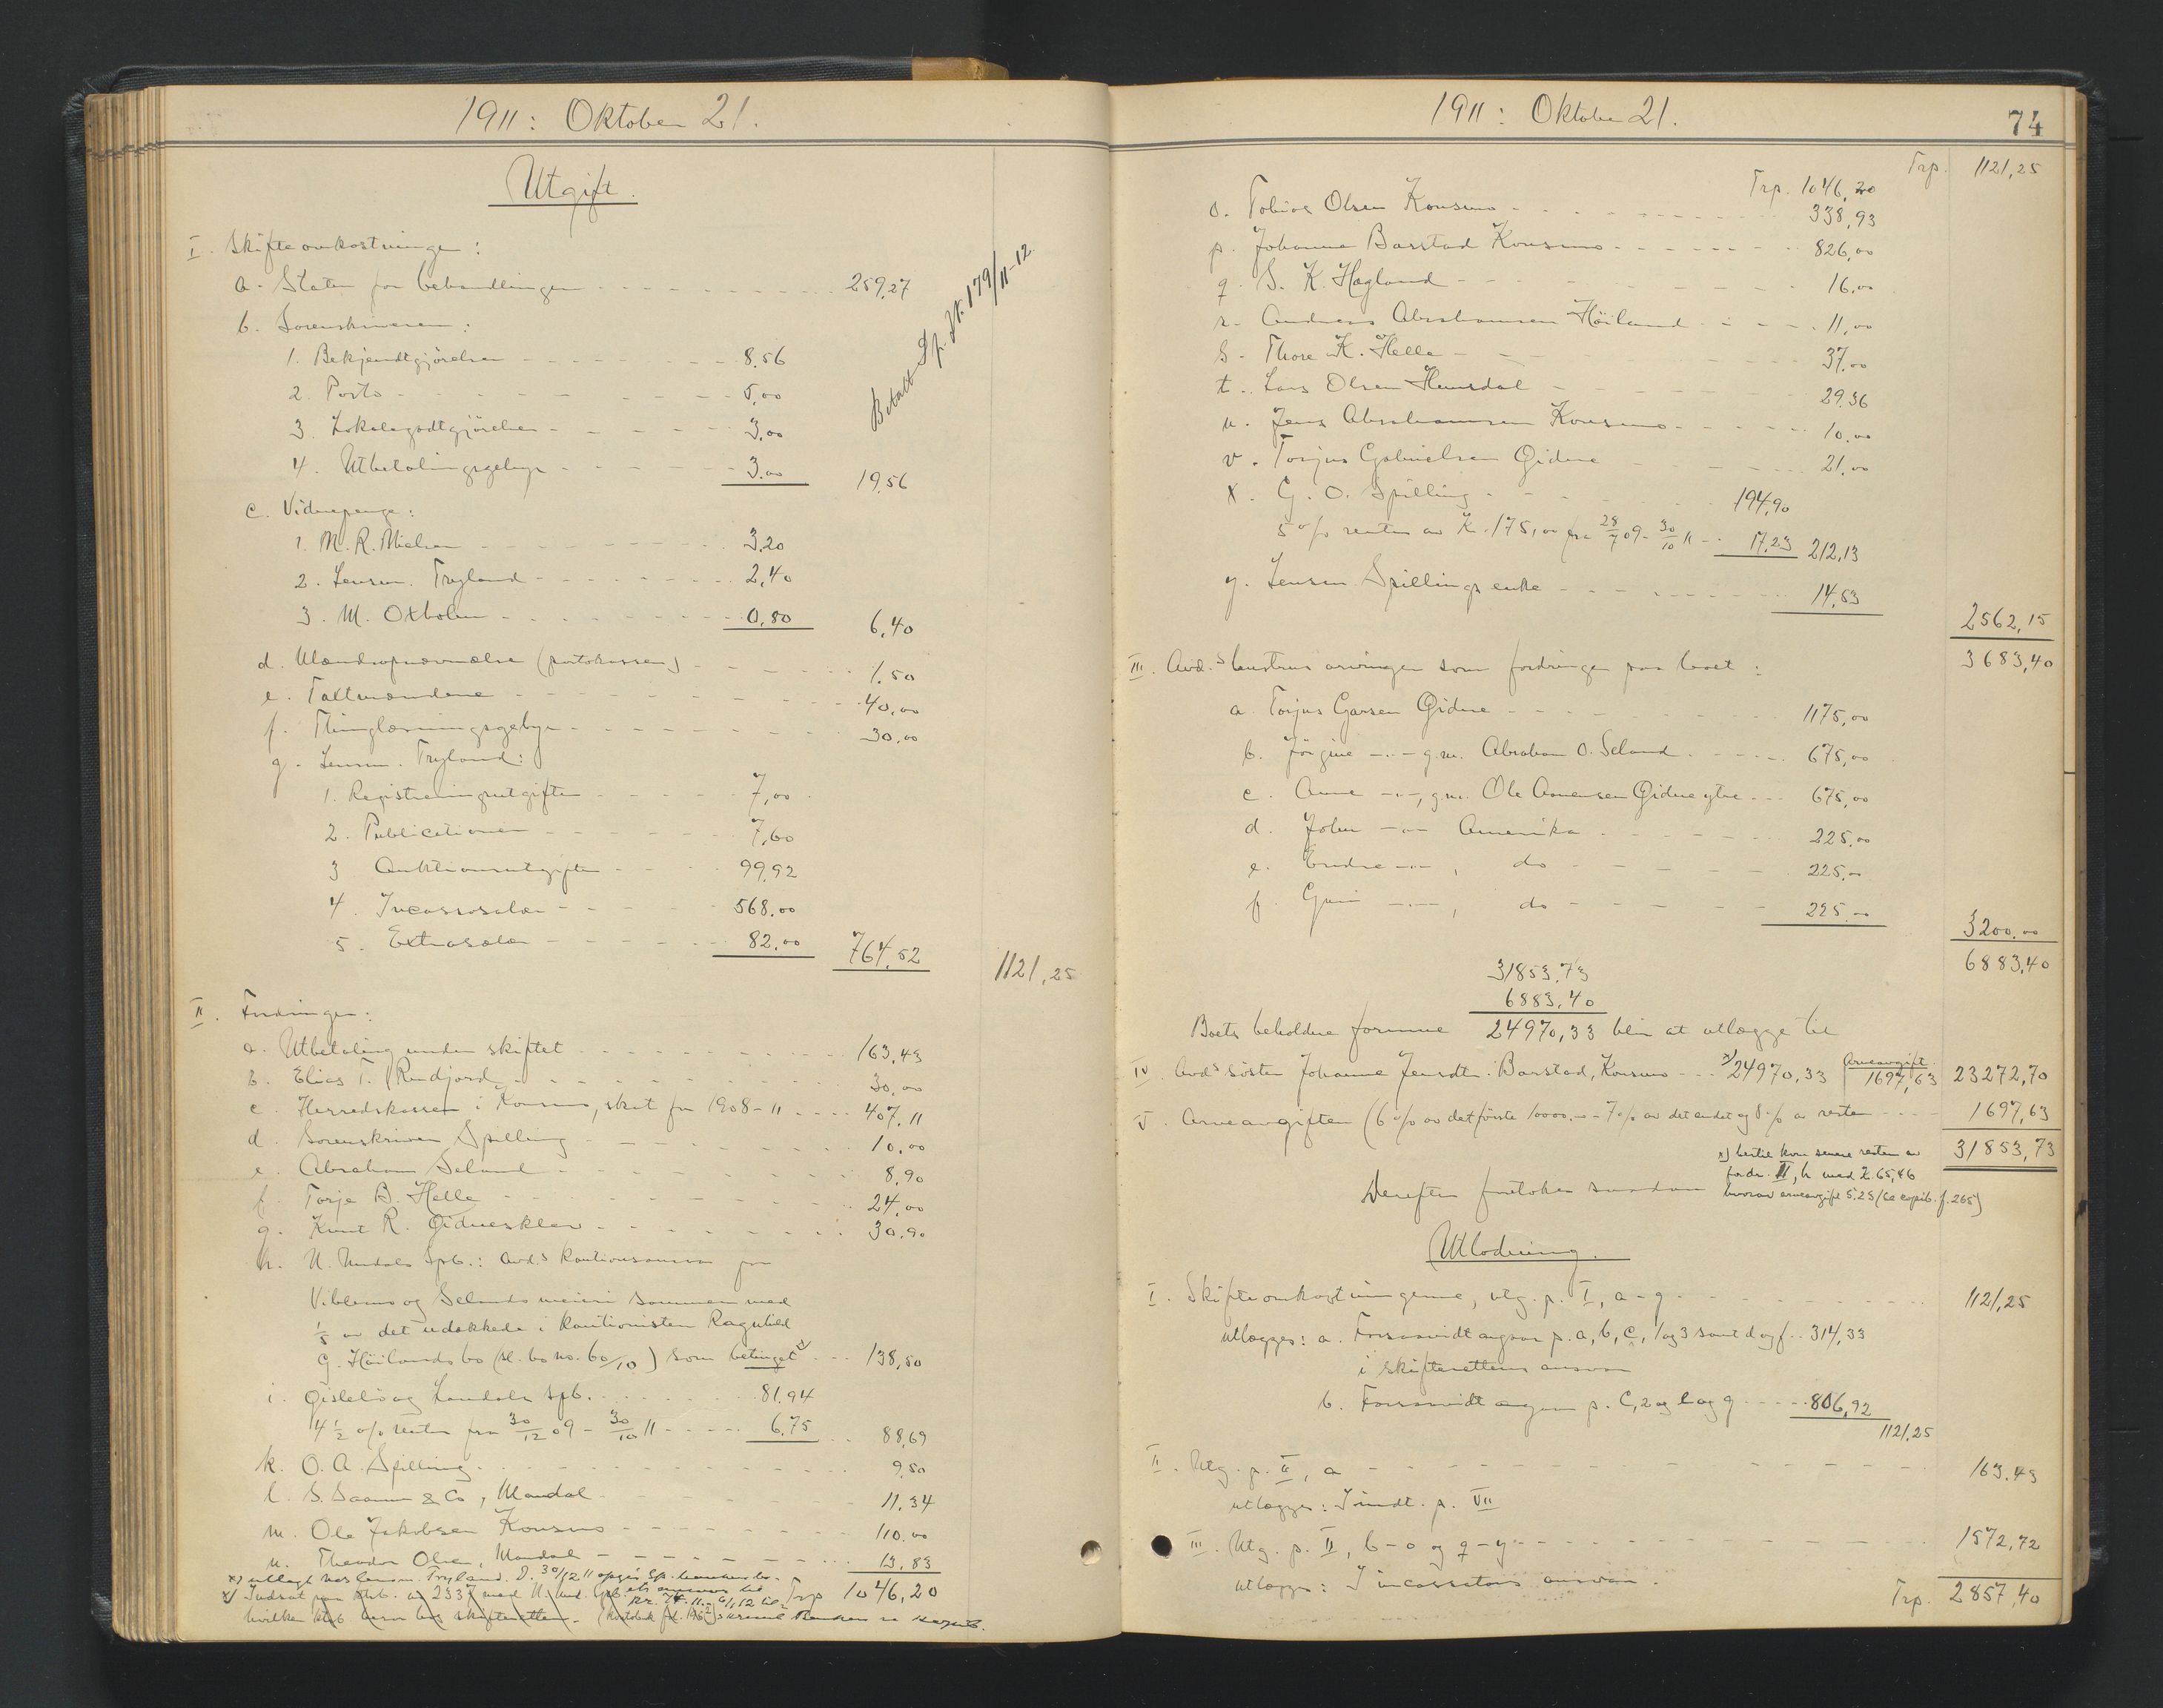 1911: Oktober 21.
Utgift.
I. Skifteomkostninger:
a. Staten for behandlingen 259,27
b. Sorenskriveren:
1. Bekjendtgjörelser 8.56
2. Porto 5,00
3. Lokalegodtgjörelse 3,00
4. Utbetalingsgebyr 3.00 19,56
Betalt Sp. J.N. 179/11-12.
c. Vidnepenge:
1. M. R. Nielsen 3,20
2. Lensm. Tryland 2,40
3. M. Oxholm 0,80 6,40
d. Mændsopnævnelse (portokassen) 1.50
e. Takstmændene 40,00
f. Thinglæsningsgebyr 30,00
g. Lensm. Tryland:
1. Registreringsutgifter 7,00
2. Publicationer 7,60
3 Auktionsutgifter 99,92
4. Incassosalær 568,00
5. Extrasalær 82,00 764,52 1121,25
II. Fordringer:
a. Utbetaling under skiftet 163,43
b. Elias T. Rudjord 30,00
c. Herredskassen i Konsmo, skat for 1908-11 407,11
d. Sorenskriver Spilling 10,00
e. Abraham Seland 8,90
f. Torje B. Helle 24,00
g. Knut R. Øidnesklev 30,90
h. N. Undals Spb.: avd.s kautionsansvar for
Viblemo og Selands meieri sammen med
1/5 av det udækkede i kautionisten Ragnhild
G. Höilands bo (sl. bo no. 60/10) som betinget x) 138,50
i. Øislebö og Laudals Spb. 81,94
4 1/2 o/o renter fra 30/12 09 - 30/10 11 6,75 88,69
k. O. A. Spilling 9,50
l. S. Saanum & Co, Mandal 11,34
m. Ole Jakobsen Konsmo 110,00
n. Theodor Olsen, Mandal 13,83
x) utlagt hos lensm. Tryland. D. 30/12 11
Trp 1046,20
x) Indsat paa ktrb. no 2337 med N. Und. Spb.
hvilken ktrb. beror hos skifteretten.
1911: Oktober 21.
74
Trp. 1121,25
Trp. 1046,20
o. Tobias Olsen Konsmo 338,93
p. Johanne Barstad Konsmo 826,00
q. S. K. Høgland 16,00
r. Andreas Abrahamsen Höiland 11,00
s. Thore K. Helle 37,00
t. Lars Olsen Heursdal 29.36
u. Jens Abrahamsen Konsmo 10,00
v. Torjus Gabrielsen Øidne 21,00
x. G. O. Spilling 194,90
5 o/o renter av K. 175,00 fra 28/7 09 - 30/10 11 17,23 212,13
y. Lensm Spillings enke 14,53
2562,15
3683,40
III. Avd.s hustrus arvinger som fordringer paa boet:
a. Torjus Garsen Øidne 1175,00
b. Jörgine -"- g.m. Abraham O. Seland 675,00
c. Anne -"-, g.m. Ole Aanensen Øidne ytre 675,00
d. John -"- Amerika 225,00
e. Endre -"-, do 225,-
f. Guri -"-, do 225,-
3200,00
6883,40
31853,73
6883,40
Boets beholdne formue 24970,33 blir at utlægge til
IV. Avds söster Johanne Jensdtr. Barstad, Konsmo x) 24970,33 Arveavgift 1697,63 23272,70
V. Arveavgiften (6 o/o av det förste 10000,- - 7 o/o av det andet og 8 o/o av resten 1697,63
31853,73
x) hertil kom senere resten av
fordr. II, h med K. 65,46
hvorav arveavgift 5.23 (se kopib. f. 265)
Derefter foretokes saadan
Utlodning.
I. Skifteomkostningerne, utg. p. I, a-g 1121,25
utlægges: a. Forsaavidt angaar p. a, b, c, 1 og 3 samt d og f 314,33
i skifterettens ansvar
b. Forsaavidt angaar p. c, 2 og e og g 806,92
1121,25
II. Utg. p. II, a 163.43
utlægges: I indt. p. VII
III. Utg. p. II, b-o og q-y 1572,72
utlægges: I incassators ansvar.
Trp. 2857,40